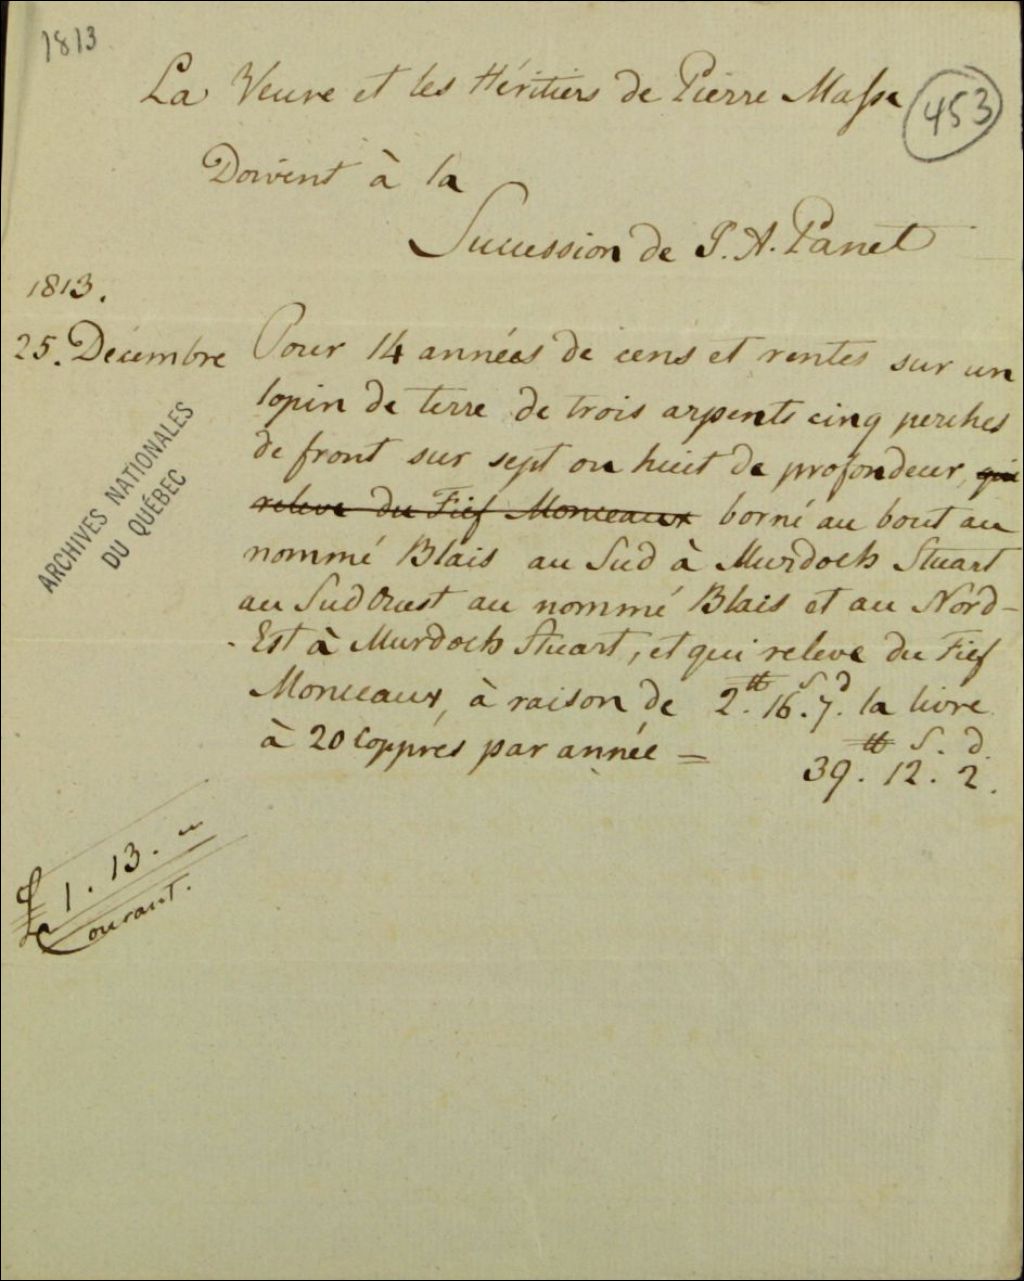 1813
La Veuve et les Héritiers de Pierre Masse
453
Doivent à la
Succession de P. A. Panet
1813.
25. Décembre Pour 14 années de cens et rentes sur un
lopin de terre de trois arpents cinq perches
de front sur sept ou huit de profondeur, qui
releve du Fief Monceaux borné au bout au
nommé Blais au Sud à Murdoch Stuart
au Sud Ouest au nommé Blais et au Nord-
Est à Murdoch Stuart, et qui releve du Fief
Monceaux, à raison de 2.₶ 16.S 7.d la livre
à 20 Coppres par année = ₶ S. d.
39. 12. 2.
ARCHIVES NATIONALES
DU QUÉBEC
£ 1. 13. "
Courant.